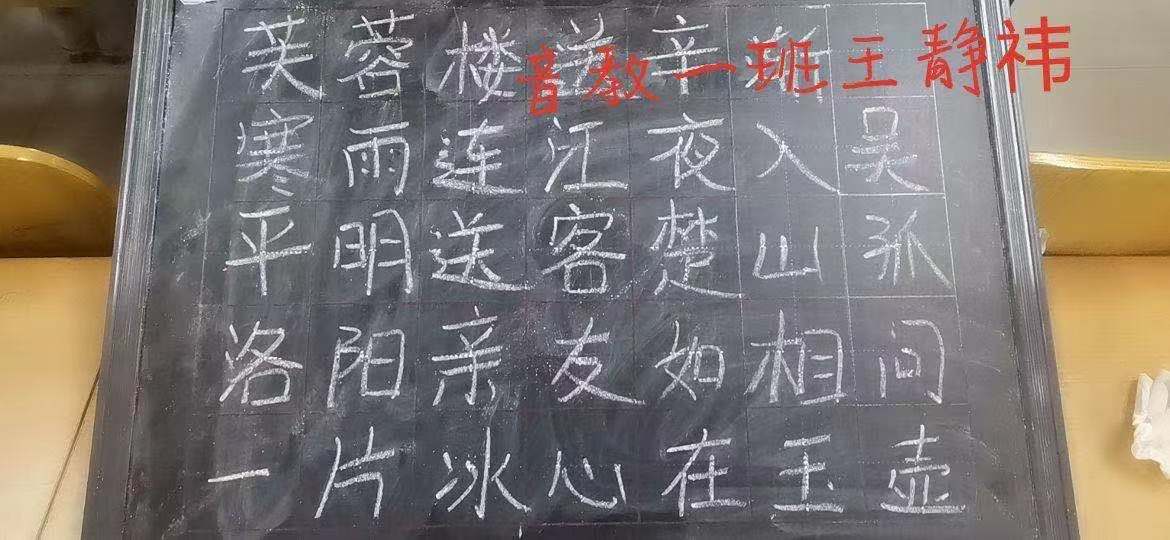 芙蓉楼送辛渐
音教一班王静祎
寒雨连江夜入吴
平明送客楚山孤
洛阳亲友如相问
一片冰心在玉壶